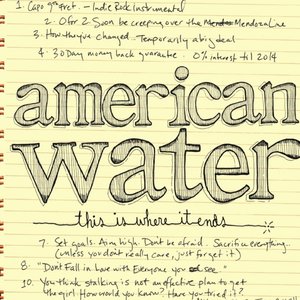 1. Capo 9th fret. – Indie Rock Instrumental
2. 0 for 2. Soon be creeping over the Mendoza Line
3. How they've changed. Temporarily a big deal
4. 30 Day money back guarantee. 0% interest til 2014
american
water
this is where it ends
7. Set goals. Aim high. Don't be afraid. Sacrifice everything..
(unless you don't really care, just forget it)
8. "Don't Fall in love with Everyone you see"
10. You think stalking is not an effective plan to get
the girl. How would you know? Have you tried it?